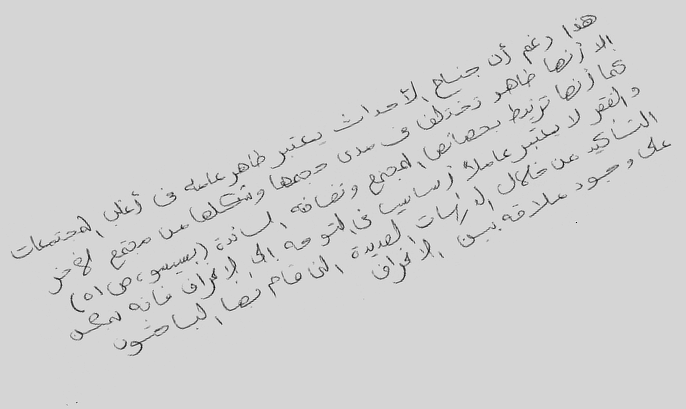 هذا رغم أن جناح الأحداث يعتبر ظاهر عامه فى أغلب المجتمعات
الا أنها ظاهر تختلف فى مدى حجمها وشكلها من مجتمع لآخر
كما أنها ترتبط بخصائص المجتمع وثقافته السائدة (بسيسو، ص ١٥)
والفقر لا يعتبر عاملاً أساسيا فى التوجه الى الانحراف فانه يمكن
التأكيد من خلال الدراسات العديدة التى قام بها الباحثون
على وجود علاقه بين الانحراف